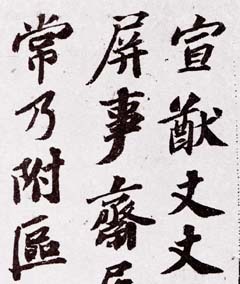 宣猷丈丈
屏事齋居
常乃附區